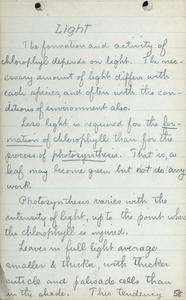 Light
The formation and activity of
chlorophyl depends on light. The nec-
essary amount of light differs with
each species and often with the con-
ditions of environment also.
Less light is required for the for-
mation of chlorophyll than for the
process of photosynthesis. That is, a
leaf may become green but not do any
work.
Photosynthesis varies with the
intensity of light, up to the point where
the chlorophyll is injured.
Leaves in full light average
smaller & thicker, with thicker
cuticle and palisade cells than
in the shade. This tendency